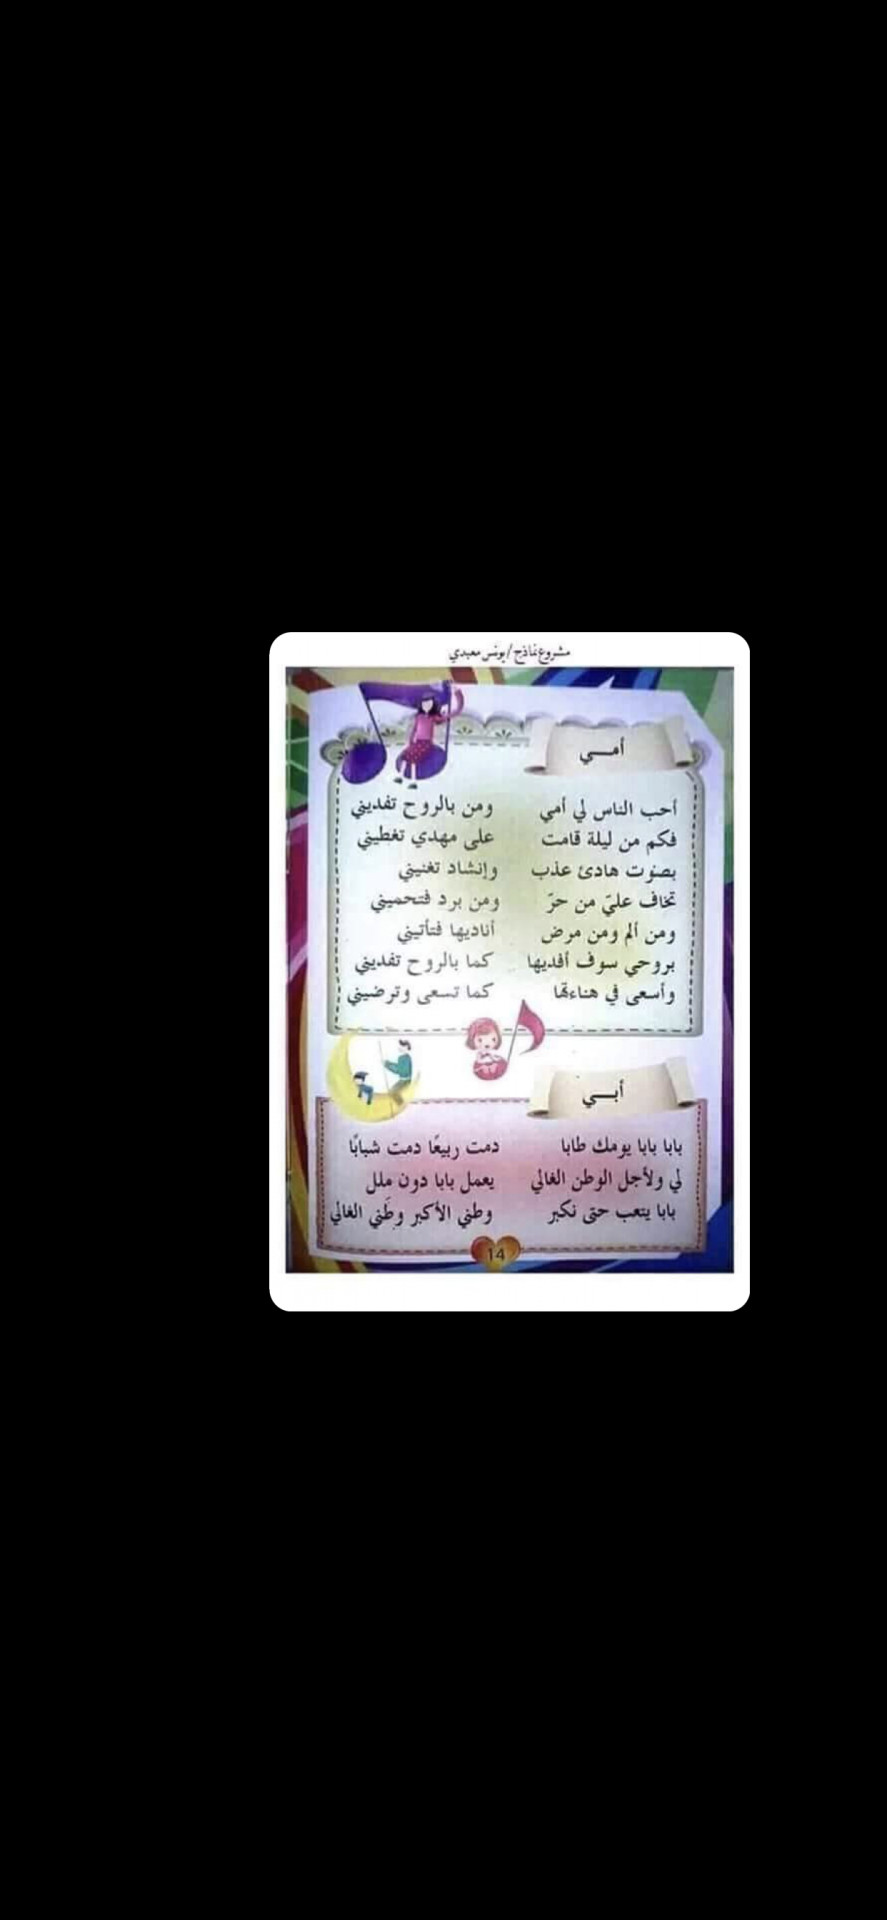 مشروع نماذج/يونس معبدي
أمـــي
أحب الناس لي أمي ومن بالروح تفديني
فكم من ليلة قامت على مهدي تغطيني
بصوت هادئ عذب وإنشاد تغنيني
تخاف عليّ من حرّ ومن برد فتحميني
ومن ألم ومن مرض أناديها فتأتيني
بروحي سوف أفديها كما بالروح تفديني
وأسعى في هناءتها كما تسعى وترضيني
أبـــي
بابا بابا يومك طابا دمت ربيعًا دمت شبابًا
لي ولأجل الوطن الغالي يعمل بابا دون ملل
بابا يتعب حتى نكبر وطني الأكبر وطَني الغالي
14